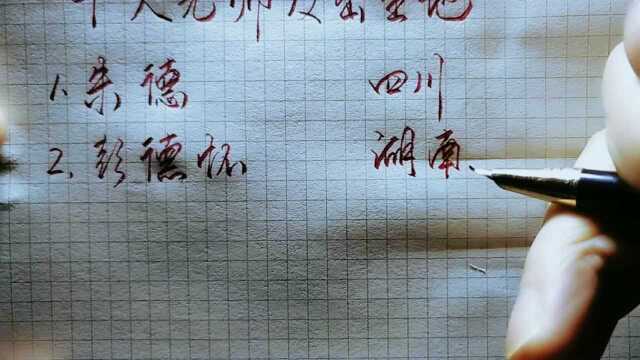 十大元帅及出生地
1.朱德 四川
2.彭德怀 湖南